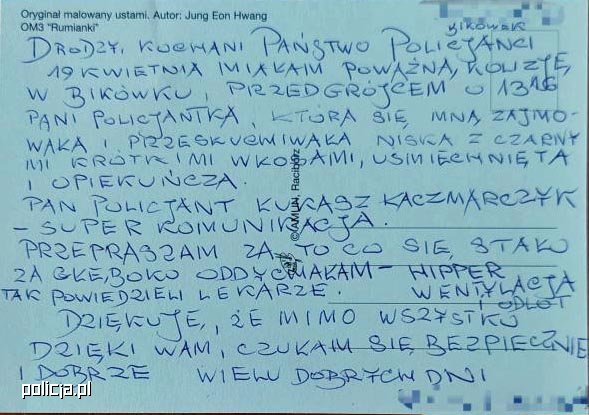 Oryginał malowany ustami. Autor: Jung Eon Hwang
OM3 "Rumianki"
BIKÓWEK
DRODZY, KOCHANI PAŃSTWO POLICJANCI
19 KWIETNIA MIAŁAM POWAŻNĄ KOLIZJĘ
W BIKÓWKU, PRZED GRÓJCEM O 13 16
PANI POLICJANTKA, KTÓRA SIĘ MNĄ ZAJMO-
WAŁA I PRZESŁUCHIWAŁA NISKA Z CZARNY
MI KRÓTKIMI WŁOSAMI, UŚMIECHNIĘTA
I OPIEKUŃCZA.
PAN POLICJANT ŁUKASZ KACZMARCZYK
– SUPER KOMUNIKACJA.
PRZEPRASZAM ZA TO CO SIĘ STAŁO
ZA GŁĘBOKO ODDYCHAŁAM – HIPPER
TAK POWIEDZIELI LEKARZE. WENTYLACJA
I ODLOT
DZIĘKUJĘ, ŻE MIMO WSZYSTKO
DZIĘKI WAM, CZUŁAM SIĘ BEZPIECZNIE
I DOBRZE WIELU DOBRYCH DNI
© AMUN, Racibórz
policja.pl